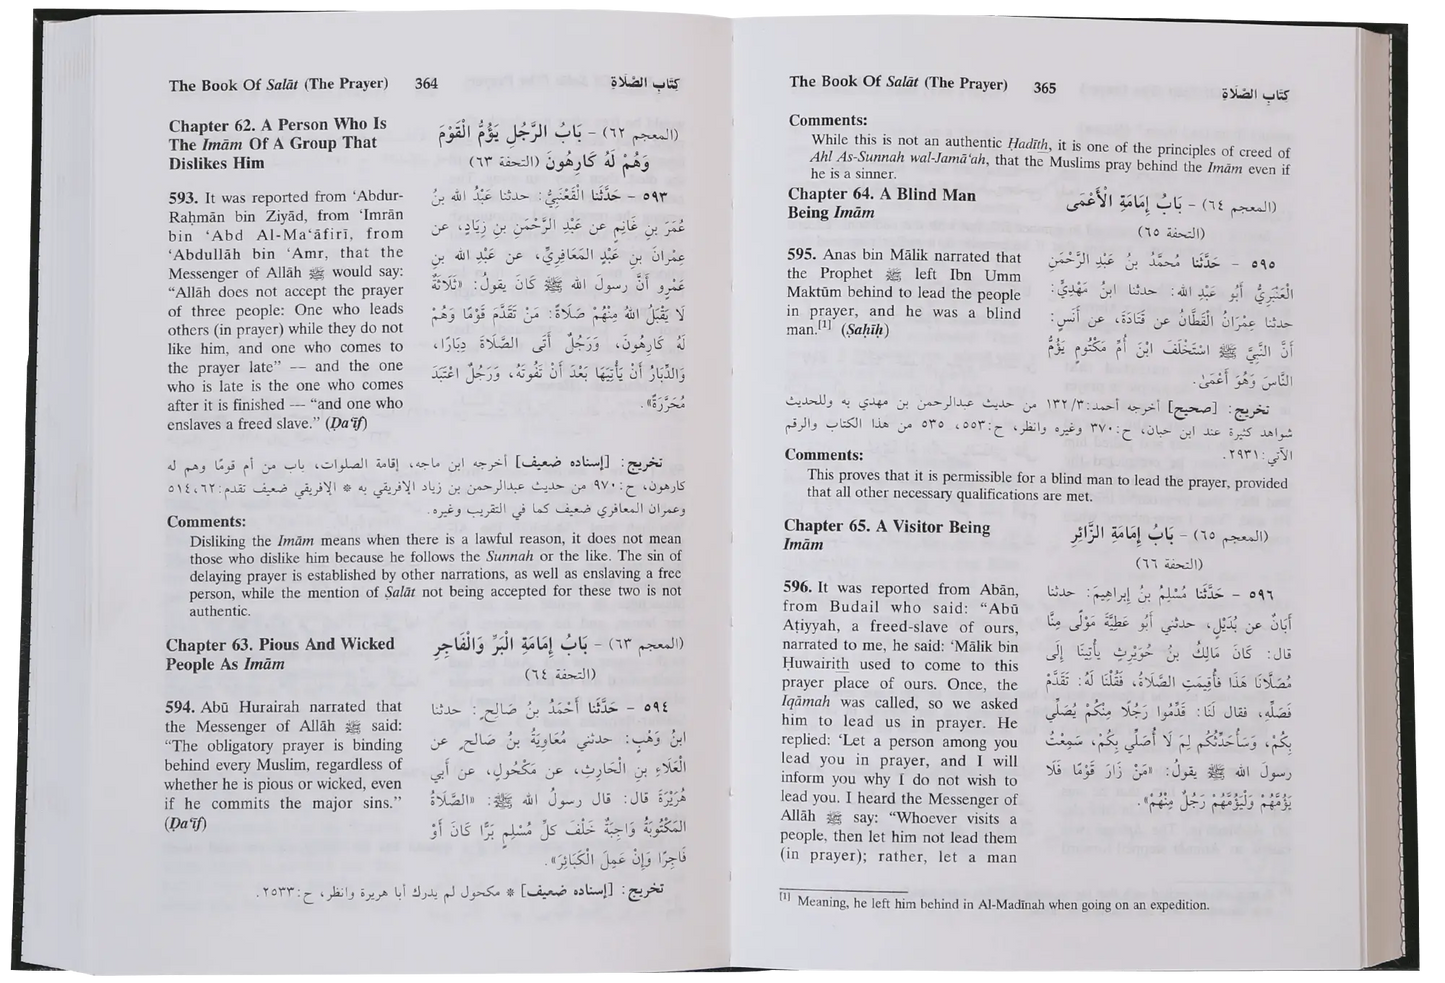 The Book Of Salāt (The Prayer) 364 كِتَاب الصَّلَاةِ
Chapter 62. A Person Who Is
The Imām Of A Group That
Dislikes Him
(المعجم ٦٢) - بَابُ الرَّجُلِ يَؤُمُّ الْقَوْمَ
وَهُمْ لَهُ كَارِهُونَ (التحفة ٦٣)
593. It was reported from ‘Abdur-
Raḥmān bin Ziyād, from ‘Imrān
bin ‘Abd Al-Ma‘āfirī, from
‘Abdullāh bin ‘Amr, that the
Messenger of Allāh ﷺ would say:
“Allāh does not accept the prayer
of three people: One who leads
others (in prayer) while they do not
like him, and one who comes to
the prayer late” — and the one
who is late is the one who comes
after it is finished — “and one who
enslaves a freed slave.” (Ḍa‘īf)
٥٩٣ - حَدَّثَنا الْقَعْنَبِيُّ: حدثنا عَبْدُ الله بنُ
عُمَرَ بنِ غَانِمٍ عن عَبْدِ الرَّحْمَنِ بنِ زِيَادٍ، عن
عِمْرانَ بنِ عَبْدٍ المَعَافِرِيِّ، عن عَبْدِ الله بنِ
عَمْرٍو أنَّ رسولَ الله ﷺ كَانَ يقولُ: «ثَلَاثَةٌ
لَا يَقْبَلُ اللهُ مِنْهُمْ صَلَاةً: مَنْ تَقَدَّمَ قَوْمًا وَهُمْ
لَهُ كَارِهُونَ، وَرَجُلٌ أَتَى الصَّلَاةَ دِبَارًا،
وَالدِّبَارُ أَنْ يَأْتِيَهَا بَعْدَ أَنْ تَفُوتَهُ، وَرَجُلٌ اعْتَبَدَ
مُحَرَّرَةً».
تخريج: [إسناده ضعيف] أخرجه ابن ماجه، إقامة الصلوات، باب من أم قومًا وهم له
كارهون، ح:٩٧٠ من حديث عبدالرحمن بن زياد الإفريقي به * الإفريقي ضعيف تقدم:٦٢، ٥١٤
وعمران المعافري ضعيف كما في التقريب وغيره.
Comments:
Disliking the Imām means when there is a lawful reason, it does not mean
those who dislike him because he follows the Sunnah or the like. The sin of
delaying prayer is established by other narrations, as well as enslaving a free
person, while the mention of Ṣalāt not being accepted for these two is not
authentic.
Chapter 63. Pious And Wicked
People As Imām
(المعجم ٦٣) - بَابُ إِمَامَةِ الْبَرِّ وَالْفَاجِرِ
(التحفة ٦٤)
594. Abū Hurairah narrated that
the Messenger of Allāh ﷺ said:
“The obligatory prayer is binding
behind every Muslim, regardless of
whether he is pious or wicked, even
if he commits the major sins.”
(Ḍa‘īf)
٥٩٤ - حَدَّثَنا أَحْمَدُ بنُ صَالِحٍ: حدثنا
ابنُ وَهْبٍ: حدثني مُعَاوِيَةُ بنُ صَالحٍ عن
الْعَلَاءِ بنِ الْحَارِثِ، عن مَكْحُولٍ، عن أَبي
هُرَيْرَةَ قال: قال رسولُ الله ﷺ: «الصَّلَاةُ
المَكْتُوبَةُ وَاجِبَةٌ خَلْفَ كلِّ مُسْلِمٍ بَرًّا كَانَ أَوْ
فَاجِرًا وَإِنْ عَمِلَ الْكَبَائِرَ».
تخريج: [إسناده ضعيف] * مكحول لم يدرك أبا هريرة وانظر، ح:٢٥٣٣.
The Book Of Salāt (The Prayer) 365 كِتَاب الصَّلَاةِ
Comments:
While this is not an authentic Ḥadīth, it is one of the principles of creed of
Ahl As-Sunnah wal-Jamā‘ah, that the Muslims pray behind the Imām even if
he is a sinner.
Chapter 64. A Blind Man
Being Imām
(المعجم ٦٤) - بَابُ إِمَامَةِ الْأَعْمَى
(التحفة ٦٥)
595. Anas bin Mālik narrated that
the Prophet ﷺ left Ibn Umm
Maktūm behind to lead the people
in prayer, and he was a blind
man.[1] (Ṣaḥīḥ)
٥٩٥ - حَدَّثَنا مُحمَّدُ بنُ عَبْدِ الرَّحْمَنِ
الْعَنْبَرِيُّ أَبُو عَبْدِ الله: حدثنا ابنُ مَهْدِيٍّ:
حدثنا عِمْرَانُ الْقَطَّانُ عن قَتَادَةَ، عن أَنَسٍ:
أنَّ النَّبيَّ ﷺ اسْتَخْلَفَ ابْنَ أُمِّ مَكْتُومٍ يَؤُمُّ
النَّاسَ وَهُوَ أَعْمَىٰ.
تخريج: [صحيح] أخرجه أحمد:٣/ ١٣٢ من حديث عبدالرحمن بن مهدي به وللحديث
شواهد كثيرة عند ابن حبان، ح:٣٧٠ وغيره وانظر، ح:٥٥٣، ٥٣٥ من هذا الكتاب والرقم
الآتي:٢٩٣١.
Comments:
This proves that it is permissible for a blind man to lead the prayer, provided
that all other necessary qualifications are met.
Chapter 65. A Visitor Being
Imām
(المعجم ٦٥) - بَابُ إِمَامَةِ الزَّائِرِ
(التحفة ٦٦)
596. It was reported from Abān,
from Budail who said: “Abū
Aṭiyyah, a freed-slave of ours,
narrated to me, he said: ‘Mālik bin
Ḥuwairith used to come to this
prayer place of ours. Once, the
Iqāmah was called, so we asked
him to lead us in prayer. He
replied: ‘Let a person among you
lead you in prayer, and I will
inform you why I do not wish to
lead you. I heard the Messenger of
Allāh ﷺ say: “Whoever visits a
people, then let him not lead them
(in prayer); rather, let a man
٥٩٦ - حَدَّثَنا مُسْلِمُ بنُ إبراهِيمَ: حدثنا
أَبَانٌ عن بُدَيْلٍ، حدثني أَبُو عَطِيَّةَ مَوْلًى مِنَّا
قال: كَانَ مَالِكُ بنُ حُوَيْرِثٍ يأْتِينَا إِلَى
مُصَلَّانَا هَذَا فأُقِيمَتِ الصَّلَاةُ، فَقُلْنَا لَهُ: تَقَدَّمْ
فَصَلِّهِ، فقال لَنَا: قَدِّمُوا رَجُلًا مِنْكُمْ يُصَلِّي
بِكُمْ، وَسَأُحَدِّثُكُم لِمَ لَا أُصَلِّي بِكُمْ، سَمِعْتُ
رسولَ الله ﷺ يقولُ: «مَنْ زَارَ قَوْمًا فَلَا
يَؤُمَّهُمْ وَلْيَؤُمَّهُمْ رَجُلٌ مِنْهُمْ».
[1] Meaning, he left him behind in Al-Madīnah when going on an expedition.